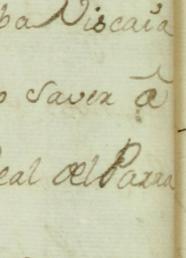 ba Viscaia
o Saver â
eal del Parra